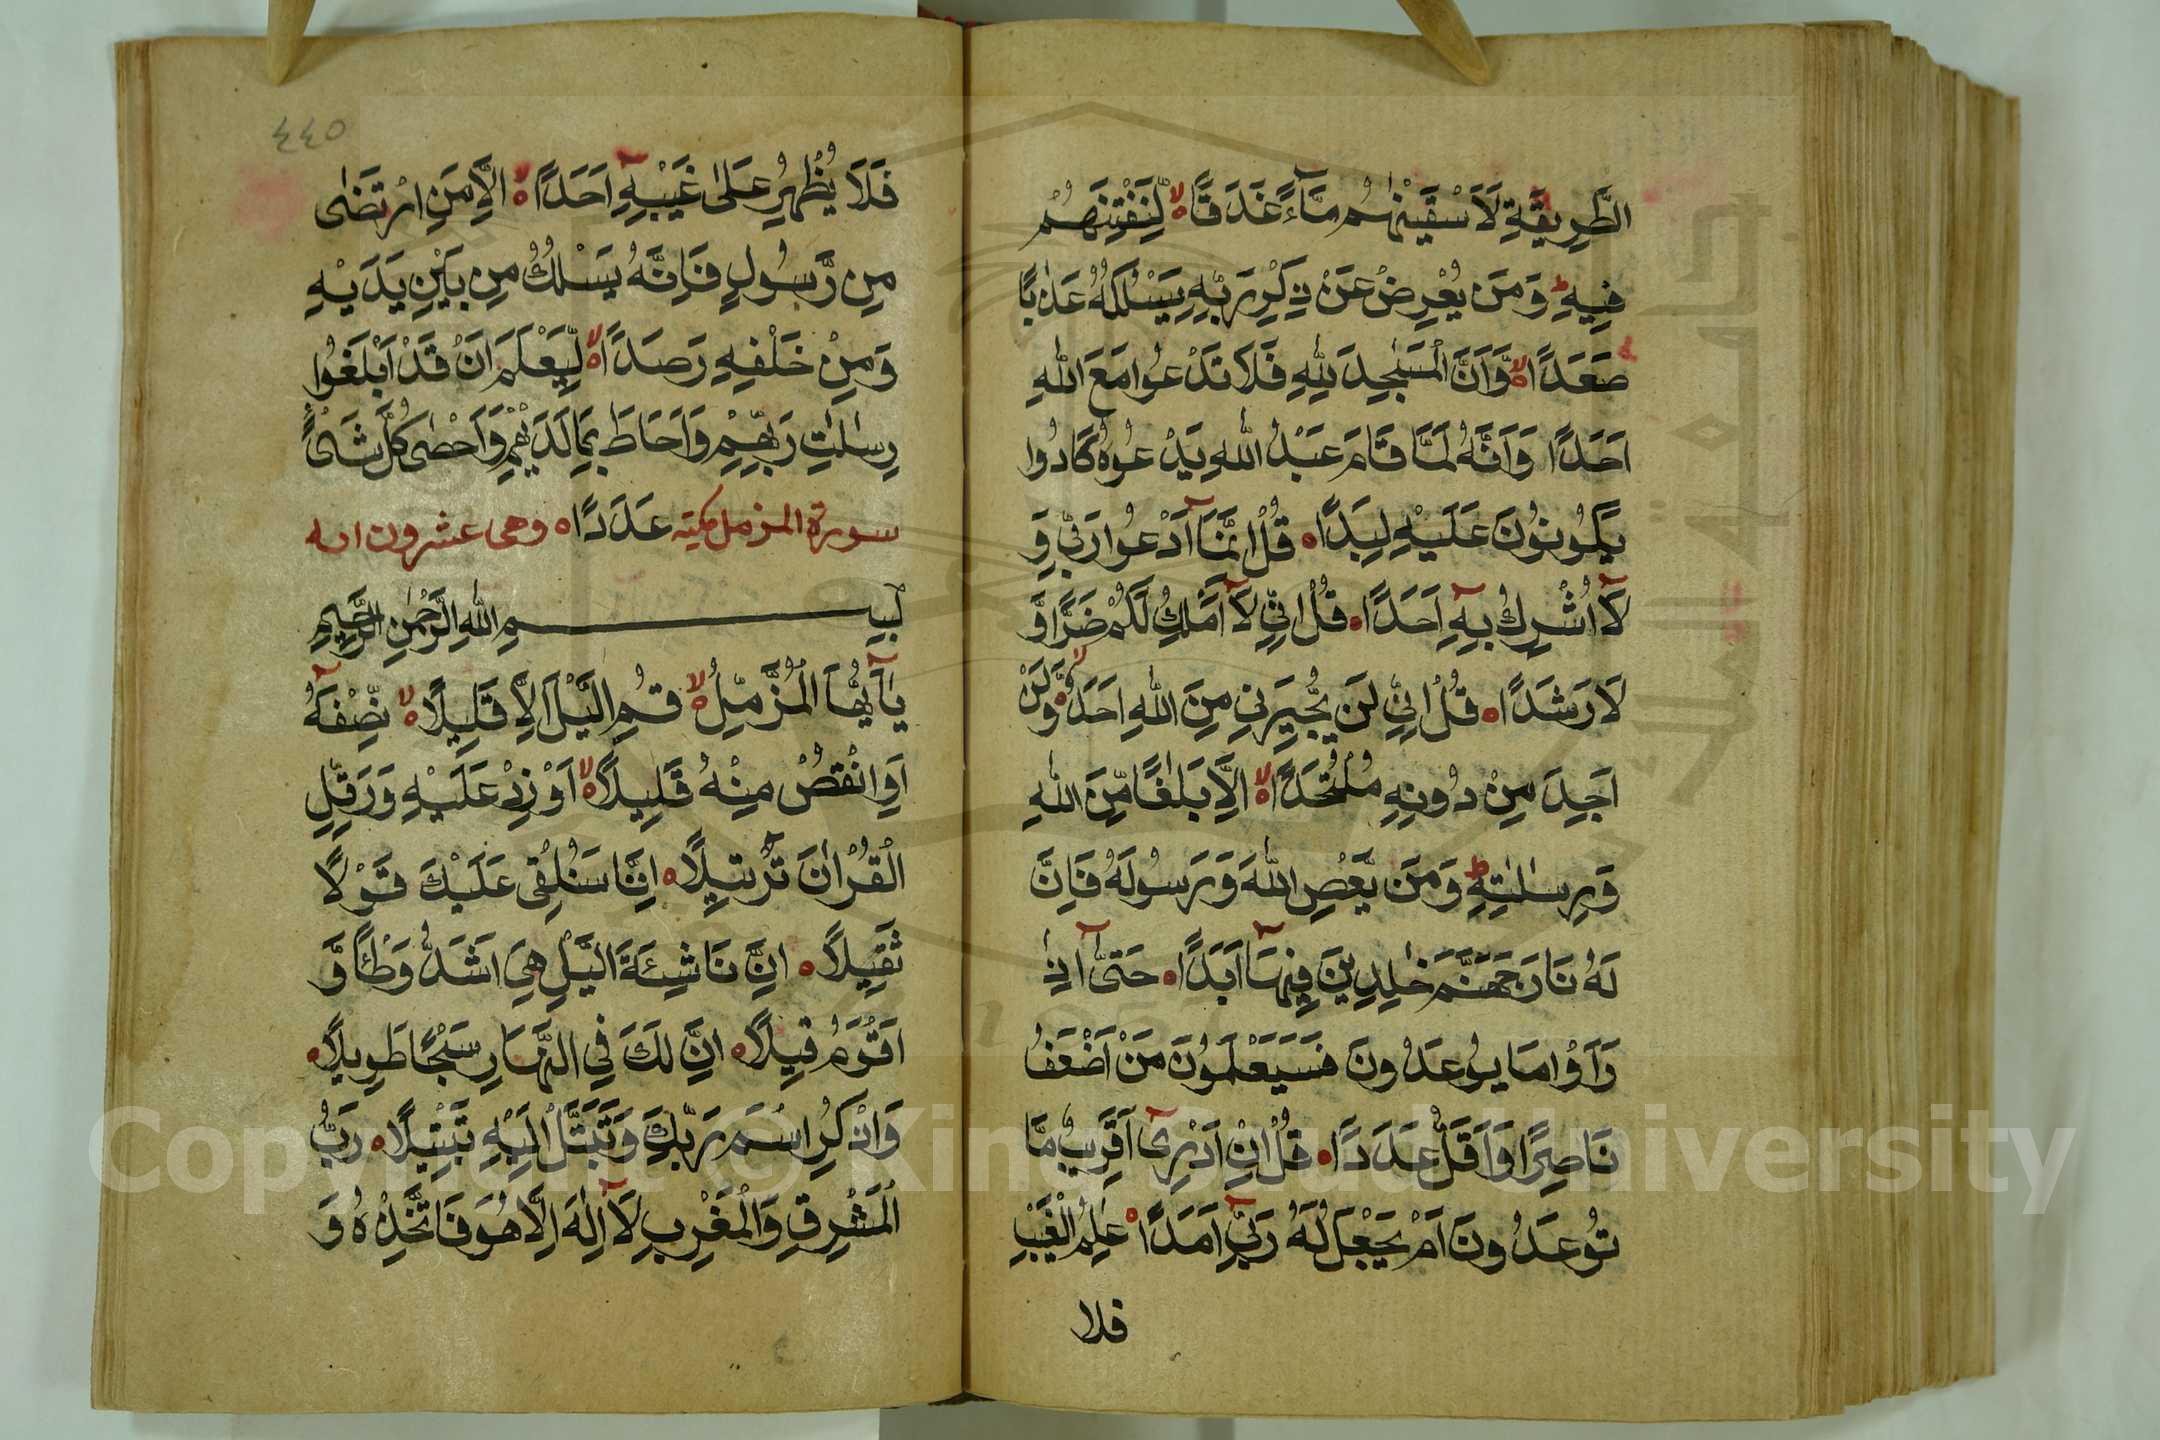 الطَّرِيقَةِ لَاَسْقَيْنٰهُم مَّآءً غَدَقًا لِّنَفْتِنَهُمْ
فِيهِ وَمَن يُعْرِضْ عَن ذِكْرِ رَبِّهِ يَسْلُكْهُ عَذَابًا
صَعَدًا وَّاَنَّ الْمَسٰجِدَ لِلّٰهِ فَلَا تَدْعُوا مَعَ اللّٰهِ
اَحَدًا وَاَنَّهُ لَمَّا قَامَ عَبْدُ اللّٰهِ يَدْعُوهُ كَادُوا
يَكُونُونَ عَلَيْهِ لِبَدًا قُلْ اِنَّمَآ اَدْعُوا رَبِّى وَ
لَآ اُشْرِكُ بِهِٓ اَحَدًا قُلْ اِنِّى لَآ اَمْلِكُ لَكُمْ ضَرًّا وَّ
لَا رَشَدًا قُلْ اِنِّى لَن يُّجِيرَنِى مِنَ اللّٰهِ اَحَدٌ وَّلَنْ
اَجِدَ مِنْ دُونِهِ مُلْتَحَدًا اِلَّا بَلٰغًا مِّنَ اللّٰهِ
وَرِسٰلٰتِهِ وَمَن يَّعْصِ اللّٰهَ وَرَسُولَهُ فَاِنَّ
لَهُ نَارَ جَهَنَّمَ خٰلِدِينَ فِيهَآ اَبَدًا حَتّٰىٓ اِذَا
رَاَوْا مَا يُوعَدُونَ فَسَيَعْلَمُونَ مَنْ اَضْعَفُ
نَاصِرًا وَّاَقَلُّ عَدَدًا قُلْ اِنْ اَدْرِىٓ اَقَرِيبٌ مَّا
تُوعَدُونَ اَمْ يَجْعَلُ لَهُ رَبِّىٓ اَمَدًا عٰلِمُ الْغَيْبِ
فلا
٤٤٥
فَلَا يُظْهِرُ عَلٰى غَيْبِهِٓ اَحَدًا اِلَّا مَنِ ارْتَضٰى
مِن رَّسُولٍ فَاِنَّهُ يَسْلُكُ مِن بَيْنِ يَدَيْهِ
وَمِنْ خَلْفِهِ رَصَدًا لِّيَعْلَمَ اَنْ قَدْ اَبْلَغُوا
رِسٰلٰتِ رَبِّهِمْ وَاَحَاطَ بِمَا لَدَيْهِمْ وَاَحْصٰى كُلَّ شَىْءٍ
سورة المزمل مكيّه عَدَدًا وهى عشرون ايه
بِسْمِ اللّٰهِ الرَّحْمٰنِ الرَّحِيمِ
يٰٓاَيُّهَا الْمُزَّمِّلُ قُمِ الَّيْلَ اِلَّا قَلِيلًا نِّصْفَهُٓ
اَوِ انْقُصْ مِنْهُ قَلِيلًا اَوْ زِدْ عَلَيْهِ وَرَتِّلِ
الْقُرْاٰنَ تَرْتِيلًا اِنَّا سَنُلْقِى عَلَيْكَ قَوْلًا
ثَقِيلًا اِنَّ نَاشِئَةَ الَّيْلِ هِىَ اَشَدُّ وَطْـًٔا وَّ
اَقْوَمُ قِيلًا اِنَّ لَكَ فِى النَّهَارِ سَبْحًا طَوِيلًا
وَاذْكُرِ اسْمَ رَبِّكَ وَتَبَتَّلْ اِلَيْهِ تَبْتِيلًا رَبُّ
الْمَشْرِقِ وَالْمَغْرِبِ لَآ اِلٰهَ اِلَّا هُوَ فَاتَّخِذْهُ وَ
Copyright © King Saud University